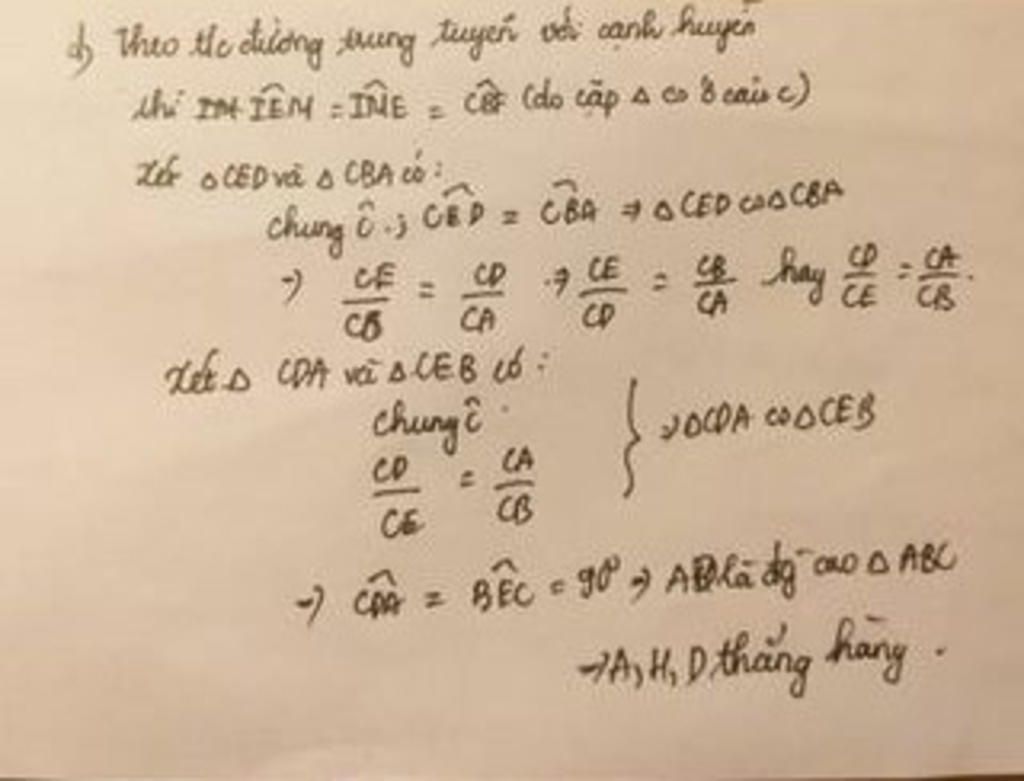 d) Theo t/c đường trung tuyến với cạnh huyền
thì IM IÊM = INE = CBF (do cặp Δ có
Xét Δ CED và Δ CBA có:
chung Ĉ ; CÊD = CB̂A → Δ CED ∽ Δ CBA
→ CE/CB = CD/CA → CE/CD = CB/CA hay CD/CE = CA/CB.
Xét Δ CDA và Δ CEB có:
chung Ĉ
CD/CE = CA/CB } → Δ CDA ∽ Δ CEB
→ CD̂A = BÊC = 90° → AD là đg cao Δ ABC
→ A, H, D thẳng hàng.